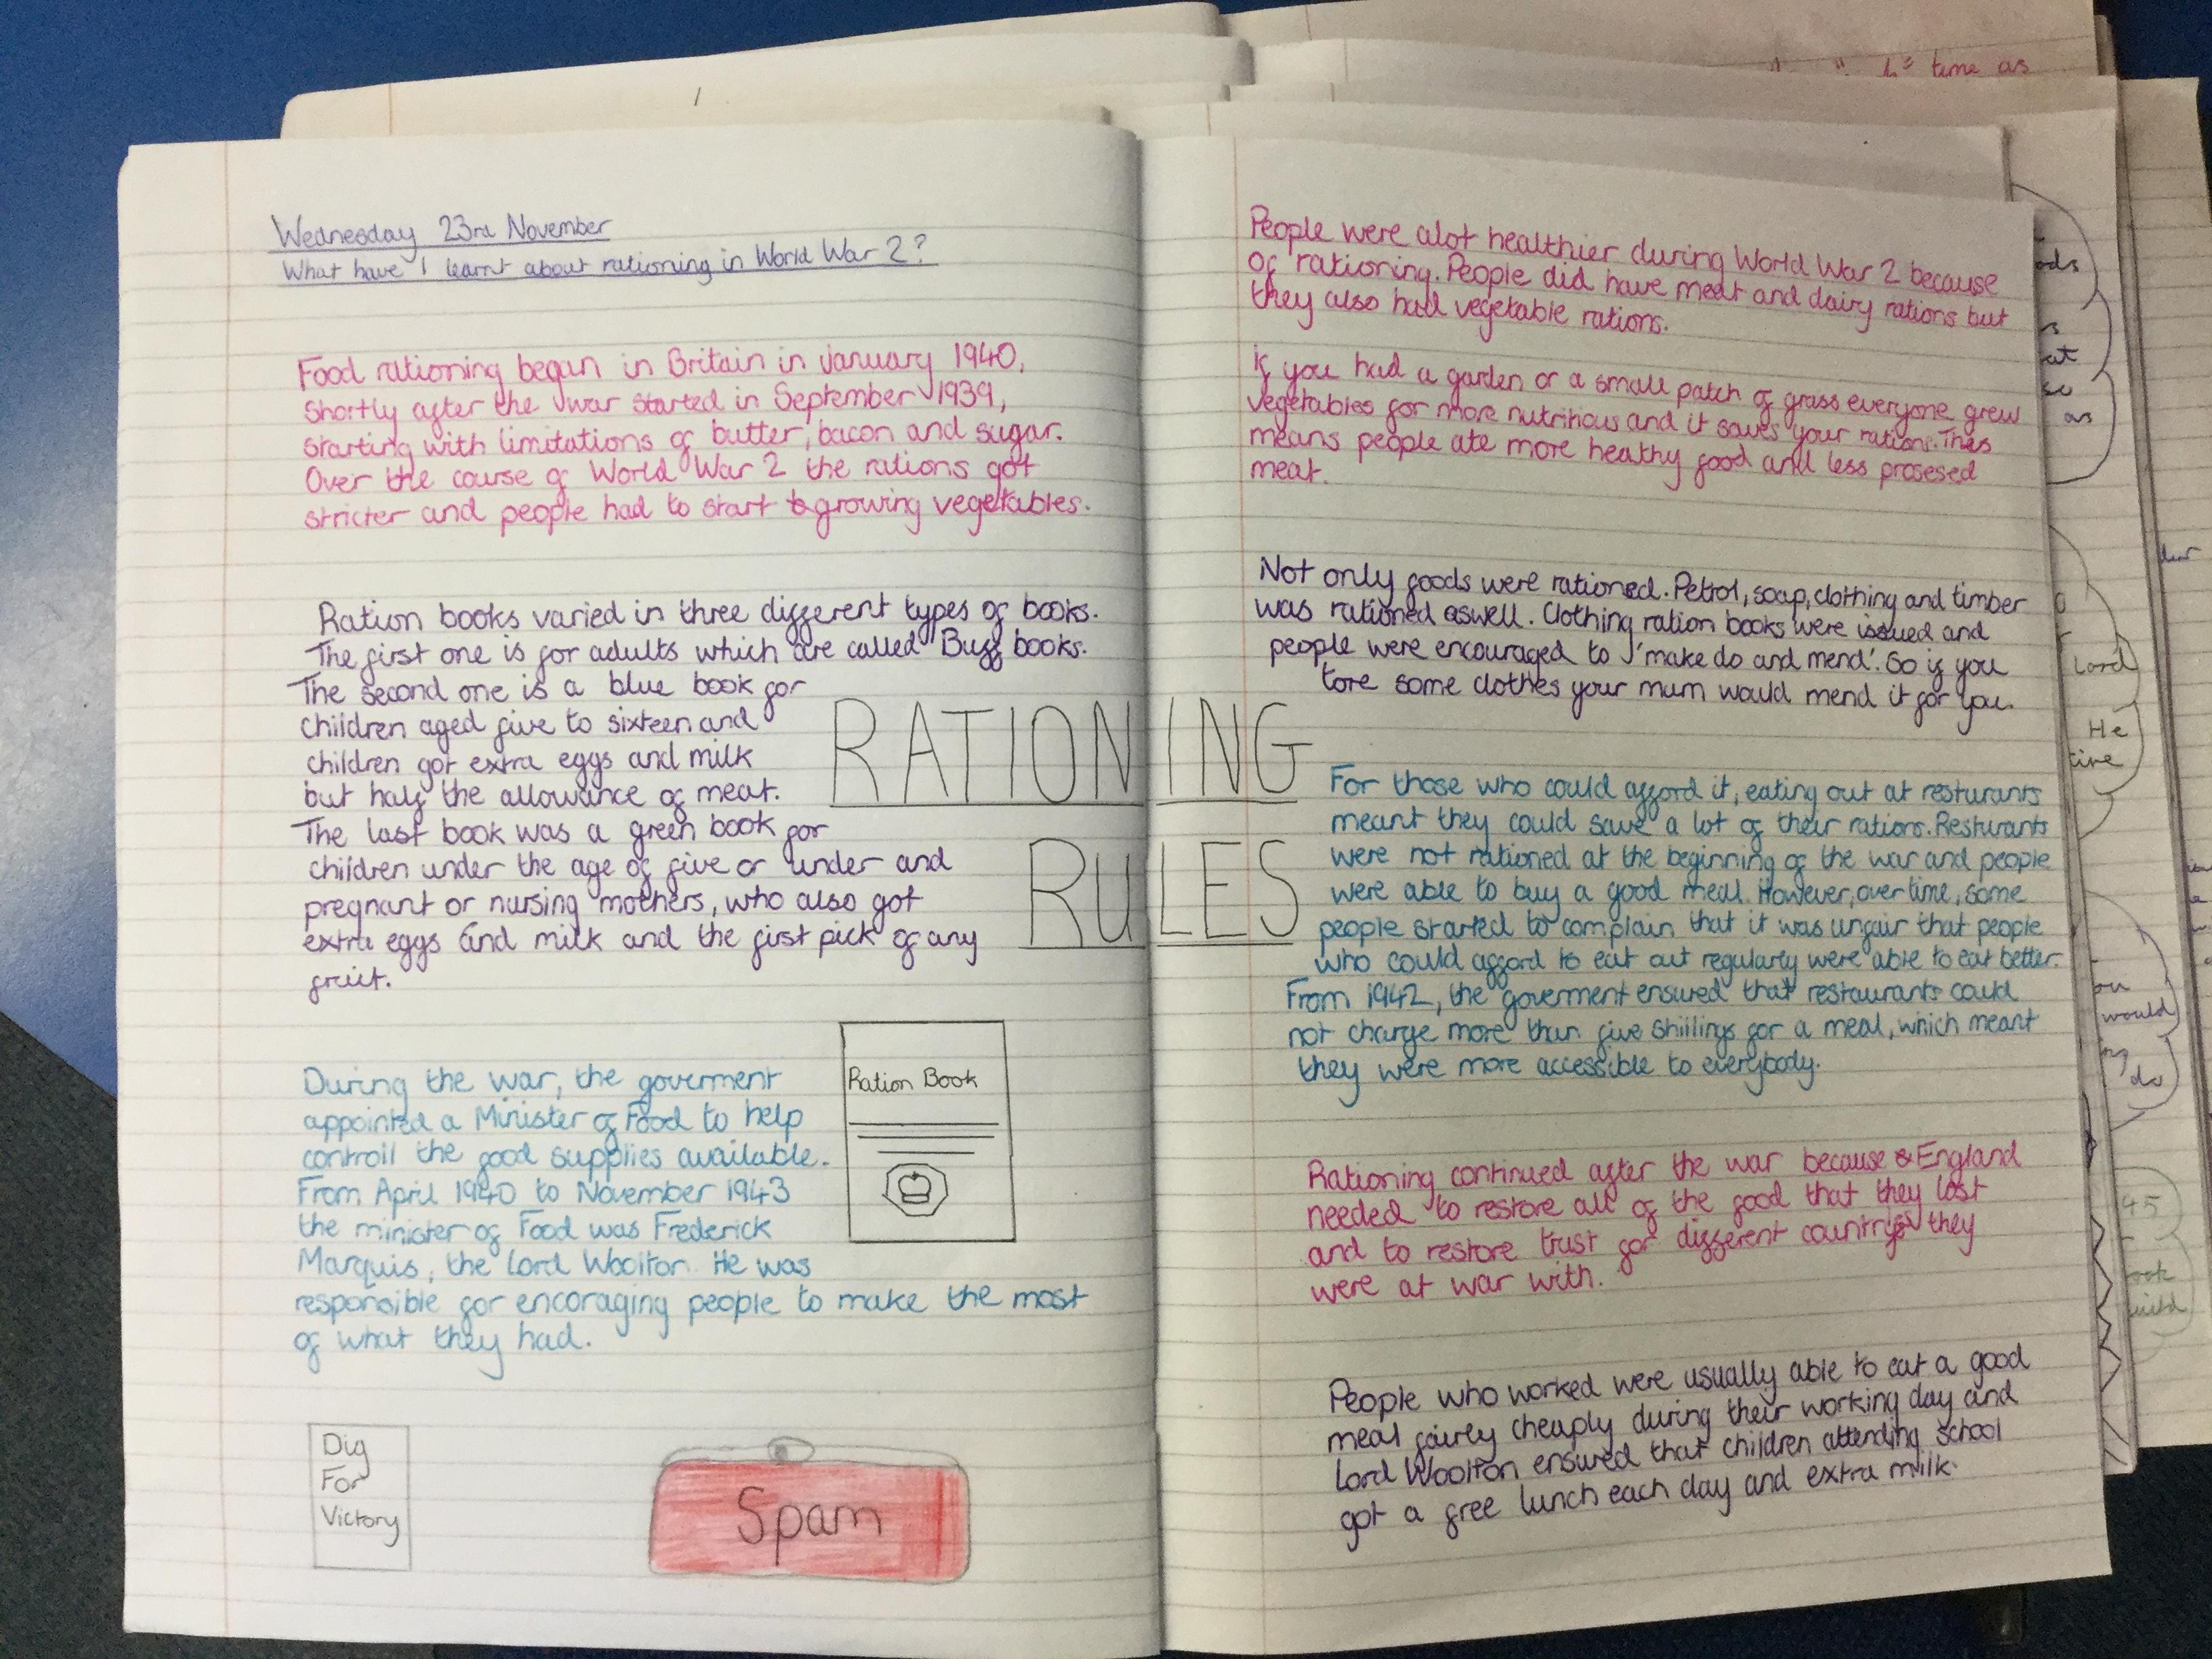 Wednesday 23rd November
What have I learnt about rationing in World War 2?
Food rationing began in Britain in January 1940,
shortly after the war started in September 1939,
starting with limitations of butter, bacon and sugar.
Over the course of World War 2 the rations got
stricter and people had to start growing vegetables.
Ration books varied in three different types of books.
The first one is for adults which are called Buff books.
The second one is a blue book for
children aged five to sixteen and
children got extra eggs and milk
but half the allowance of meat.
The last book was a green book for
children under the age of five or under and
pregnant or nursing mothers, who also got
extra eggs and milk and the first pick of any
fruit.
During the war, the goverment
appointed a Minister of Food to help
controll the food supplies available.
From April 1940 to November 1943
the minister of Food was Frederick
Marquis, the Lord Woolton. He was
responsible for encoraging people to make the most
of what they had.
Ration Book
Dig
For
Victory
Spam
RATIONING
RULES
People were alot healthier during World War 2 because
of rationing. People did have meat and dairy rations but
they also had vegetable rations.
If you had a garden or a small patch of grass everyone grew
vegetables for more nutritious and it saves your rations. This
means people ate more heathy food and less prosesed
meat.
Not only foods were rationed. Petrol, soap, clothing and timber
was rationed aswell. Clothing ration books were issued and
people were encouraged to 'make do and mend'. So if you
tore some clothes your mum would mend it for you.
For those who could afford it, eating out at resturants
meant they could save a lot of their rations. Resturants
were not rationed at the beginning of the war and people
were able to buy a good meal. However, over time, some
people started to complain that it was unfair that people
who could afford to eat out regularly were able to eat better.
From 1942, the goverment ensured that restaurants could
not charge more than five shillings for a meal, which meant
they were more accessible to everybody.
Rationing continued after the war because England
needed to restore all of the food that they lost
and to restore trust for different countrys they
were at war with.
People who worked were usually able to eat a good
meal fairly cheaply during their working day and
Lord Woolton ensured that children attending school
got a free lunch each day and extra milk.
time as
as
Lord
He
would
do
45